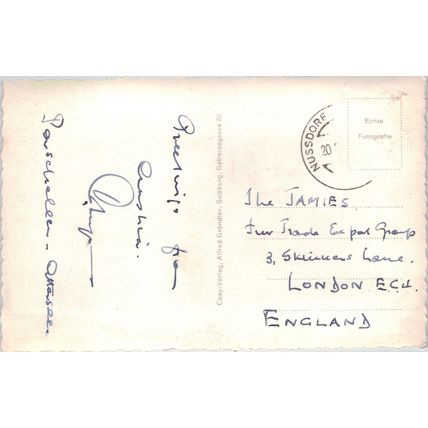 Greetings from
Austria.
Parschallen - Attersee
Cosy-Verlag, Alfred Gründler, Salzburg, Getreidegasse 22
NUSSDORF
20.
Echte
Fotografie
The JAMIES
Fur Trade Export Group
3, Skinners Lane.
LONDON E.C.4.
ENGLAND